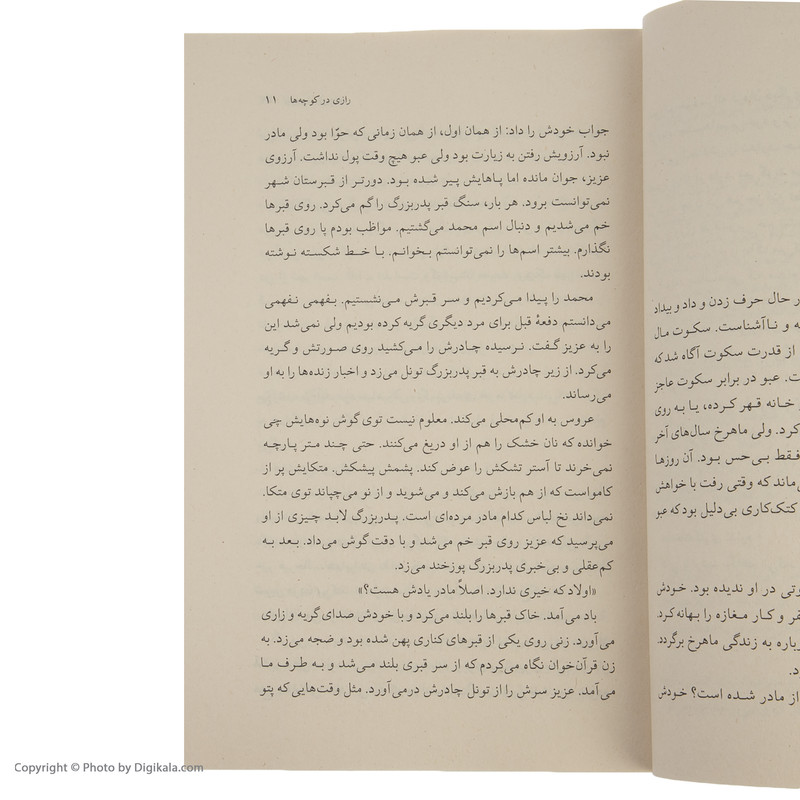 رازی در کوچه‌ها ۱۱
جواب خودش را داد: از همان اول، از همان زمانی که حوّا بود ولی مادر
نبود. آرزویش رفتن به زیارت بود ولی عبو هیچ وقت پول نداشت. آرزوی
عزیز، جوان مانده اما پاهایش پیر شده بود. دورتر از قبرستان شهر
نمی‌توانست برود. هر بار، سنگ قبر پدربزرگ را گم می‌کرد. روی قبرها
خم می‌شدیم و دنبال اسم محمد می‌گشتیم. مواظب بودم پا روی قبرها
نگذارم. بیشتر اسم‌ها را نمی‌توانستم بخوانم. با خط شکسته نوشته
بودند.
محمد را پیدا می‌کردیم و سر قبرش می‌نشستیم. بفهمی نفهمی
می‌دانستم دفعهٔ قبل برای مرد دیگری گریه کرده بودیم ولی نمی‌شد این
را به عزیز گفت. نرسیده چادرش را می‌کشید روی صورتش و گریه
می‌کرد. از زیر چادرش به قبر پدربزرگ تونل می‌زد و اخبار زنده‌ها را به او
می‌رساند.
عروس به او کم‌محلی می‌کند. معلوم نیست توی گوش نوه‌هایش چی
خوانده که نان خشک را هم از او دریغ می‌کنند. حتی چند متر پارچه
نمی‌خرند تا آستر تشکش را عوض کند. پشمش پیشکش. متکایش پر از
کامواست که از هم بازش می‌کند و می‌شوید و از نو می‌چپاند توی متکا.
نمی‌داند نخ لباس کدام مادر مرده‌ای است. پدربزرگ لابد چیزی از او
می‌پرسید که عزیز روی قبر خم می‌شد و با دقت گوش می‌داد. بعد به
کم‌عقلی و بی‌خبری پدربزرگ پوزخند می‌زد.
«اولاد که خبری ندارد. اصلاً مادر یادش هست؟»
باد می‌آمد. خاک قبرها را بلند می‌کرد و با خودش صدای گریه و زاری
می‌آورد. زنی روی یکی از قبرهای کناری پهن شده بود و ضجه می‌زد. به
زن قرآن‌خوان نگاه می‌کردم که از سر قبری بلند می‌شد و به طرف ما
می‌آمد. عزیز سرش را از تونل چادرش درمی‌آورد. مثل وقت‌هایی که پتو
ر حال حرف زدن و داد و بیداد
ه و ناآشناست. سکوت مال
از قدرت سکوت آگاه شد که
ت. عبو در برابر سکوت عاجز
خانه قهر کرده، یا به روی
کرد. ولی ماهرخ سال‌های آخر
فقط بی‌حس بود. آن روزها
می‌ماند که وقتی رفت با خواهش
کتک‌کاری بی‌دلیل بود که عبو
وتی در او ندیده بود. خودش
فر و کار مغازه را بهانه کرد.
باره به زندگی ماهرخ برگردد.
د.
از مادر شده است؟ خودش
Copyright © Photo by Digikala.com